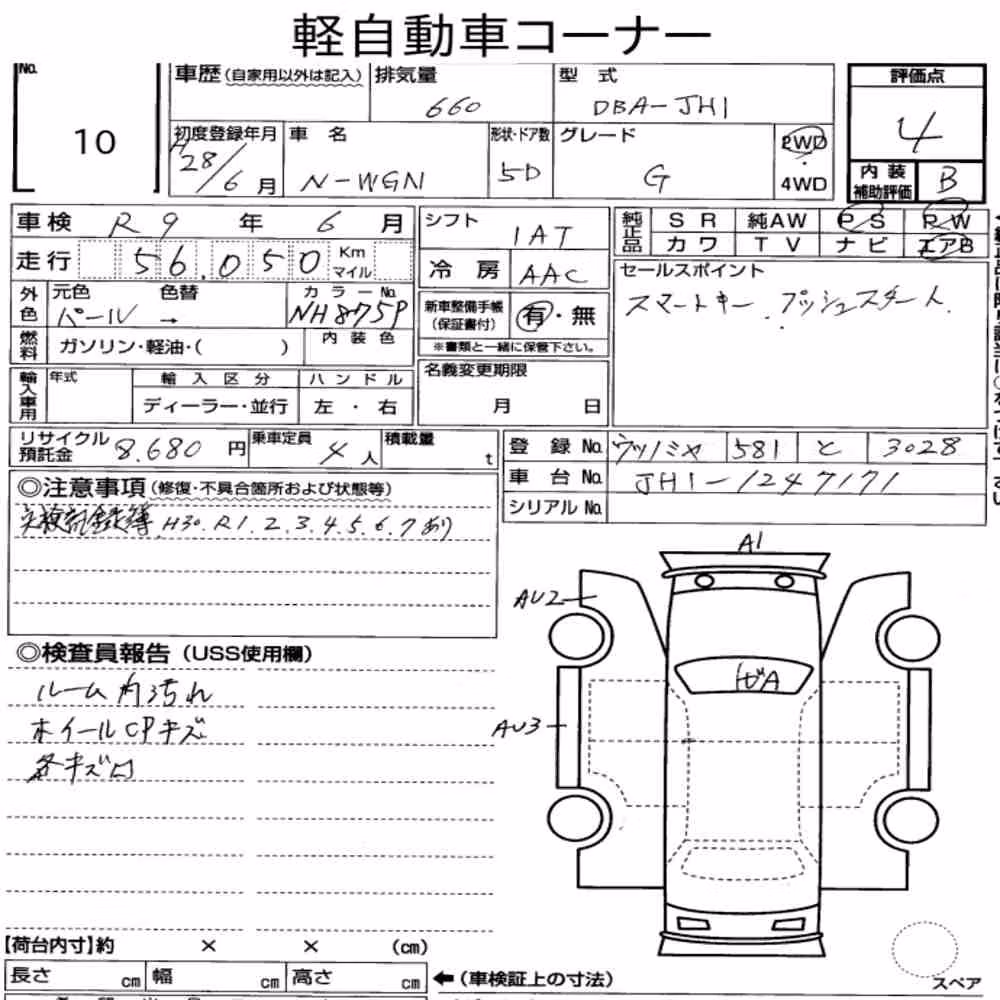 軽自動車コーナー
No. 10
車歴(自家用以外は記入) 排気量 660 型 式 DBA-JH1
評価点 4
初度登録年月 H28/6月 車 名 N-WGN 形状・ドア数 5D グレード G 2WD・4WD
内装補助評価 B
車検 R9年 6月
シフト 1AT
純正品 SR 純AW PS PW
カワ TV ナビ エアB
走行 56,050 Km マイル
冷房 AAC
セールスポイント
スマートキー．プッシュスタート
外色 元色 色替 カラーNo.
パール → NH875P
新車整備手帳(保証書付) 有・無
※書類と一緒に保管下さい。
燃料 ガソリン・軽油・( ) 内装色
名義変更期限
月 日
輸入車用 年式 輸入区分 ハンドル
ディーラー・並行 左・右
リサイクル預託金 8,680円 乗車定員 4人 積載量 t
登録No. ウツノミヤ 581 と 3028
車台No. JH1-1247171
シリアルNo.
◎注意事項(修復・不具合箇所および状態等)
記録簿 H30.R1.2.3.4.5.6.7あり
A1
AU2
◎検査員報告(USS使用欄)
ルーム内汚れ
ガA
ホイールCPキズ
AU3
各キズ凹
【荷台内寸】約 × × (cm)
長さ cm 幅 cm 高さ cm ←(車検証上の寸法)
スペア